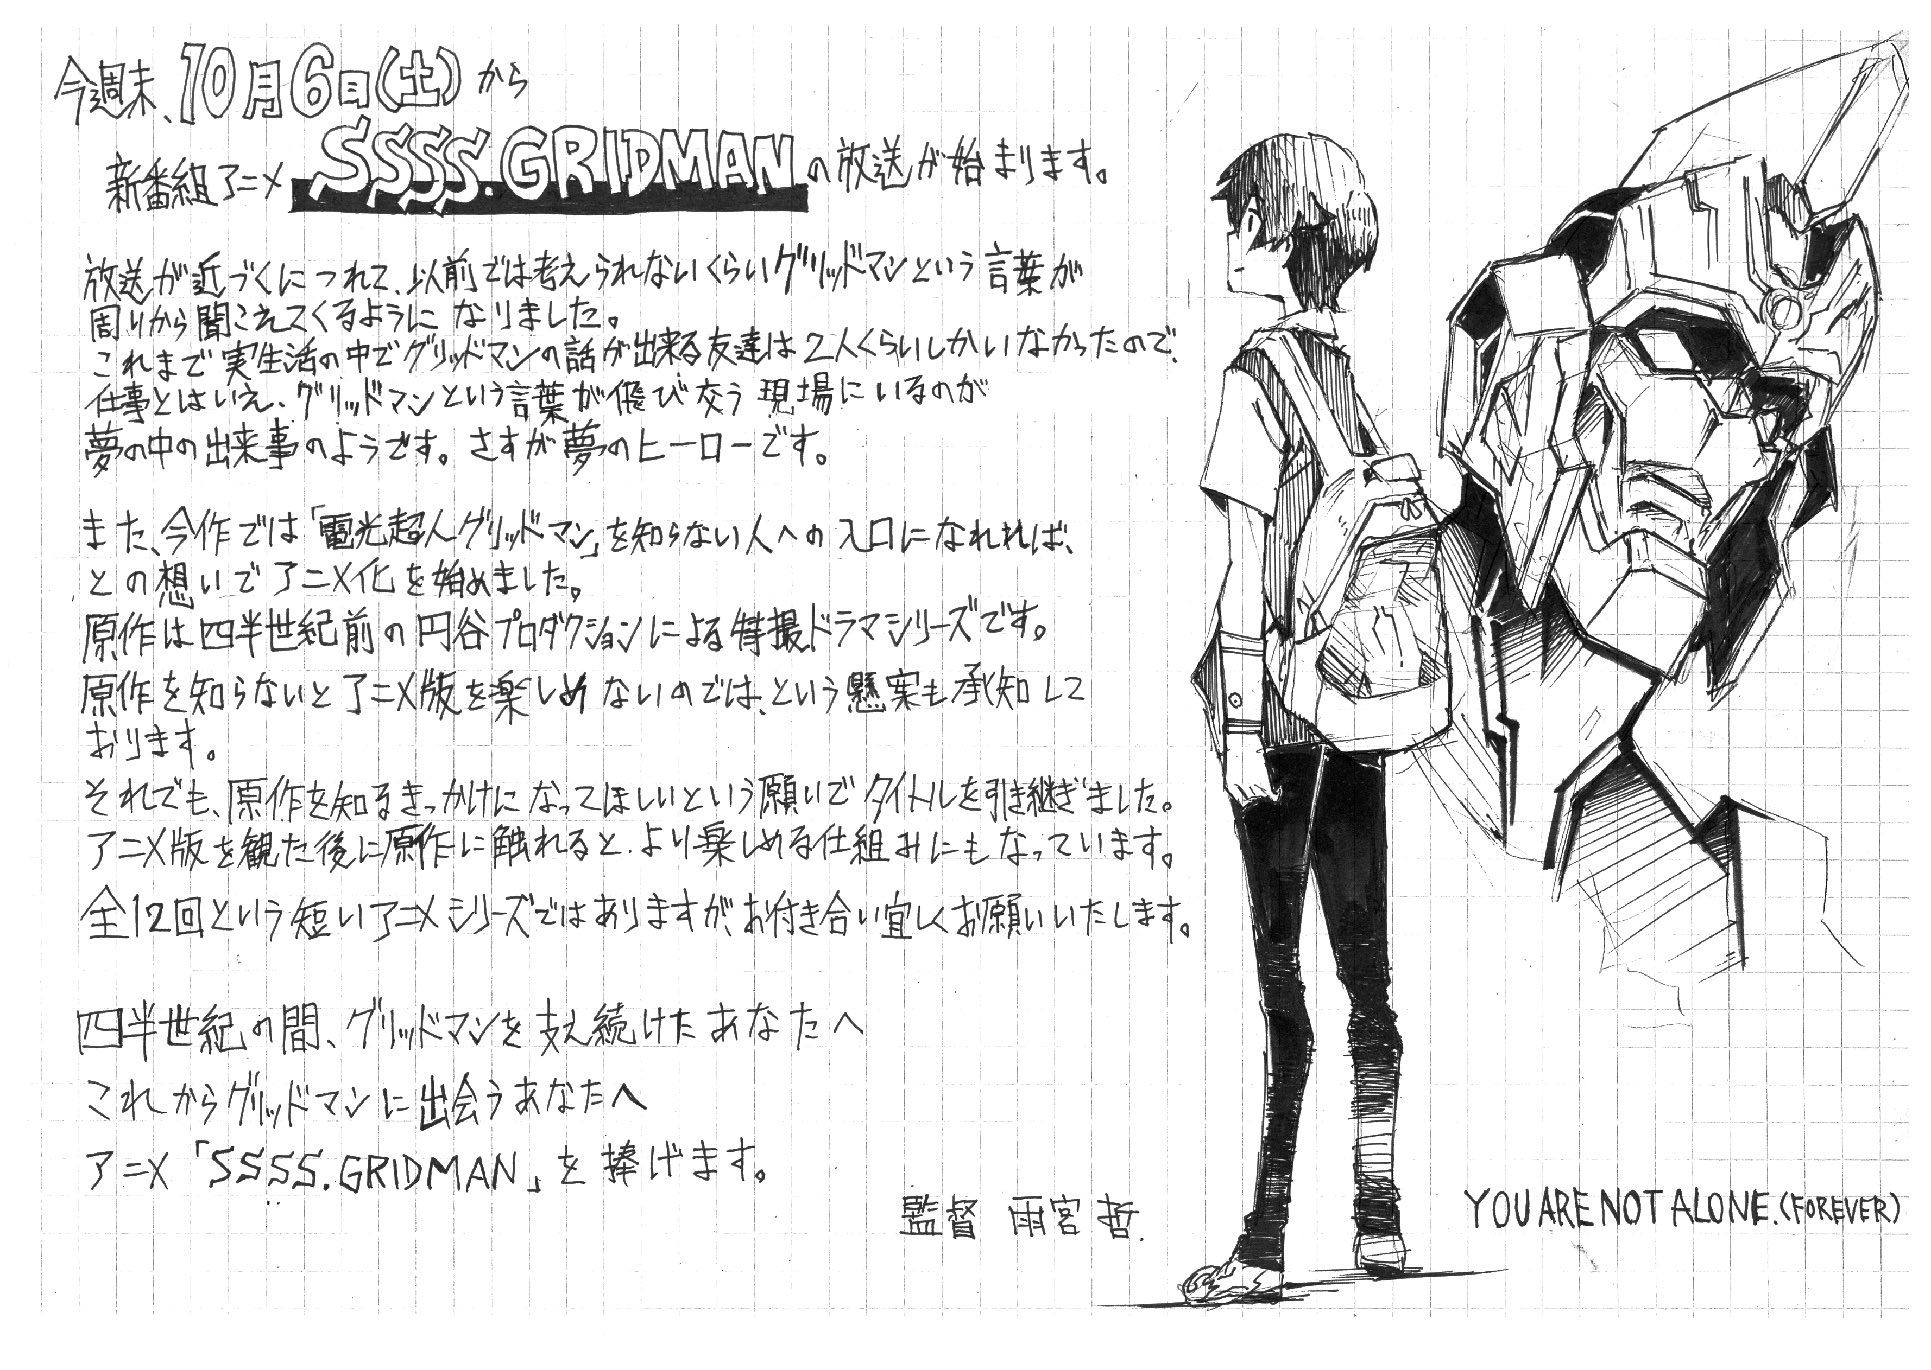 今週末、10月6日(土)から
新番組アニメ SSSS.GRIDMANの放送が始まります。
放送が近づくにつれて、以前では考えられないくらいグリッドマンという言葉が
周りから聞こえてくるようになりました。
これまで実生活の中でグリッドマンの話が出来る友達は2人くらいしかいなかったので、
仕事とはいえ、グリッドマンという言葉が飛び交う現場にいるのが
夢の中の出来事のようです。さすが夢のヒーローです。
また、今作では「電光超人グリッドマン」を知らない人への入口になれれば、
との想いでアニメ化を始めました。
原作は四半世紀前の円谷プロダクションによる特撮ドラマシリーズです。
原作を知らないとアニメ版を楽しめないのでは、という懸案も承知して
おります。
それでも、原作を知るきっかけになってほしいという願いでタイトルを引き継ぎました。
アニメ版を観た後に原作に触れると、より楽しめる仕組みにもなっています。
全12回という短いアニメシリーズではありますが、お付き合い宜しくお願いいたします。
四半世紀の間、グリッドマンを支え続けたあなたへ
これからグリッドマンに出会うあなたへ
アニメ「SSSS.GRIDMAN」を捧げます。
監督 雨宮 哲.
YOU ARE NOT ALONE.(FOREVER)